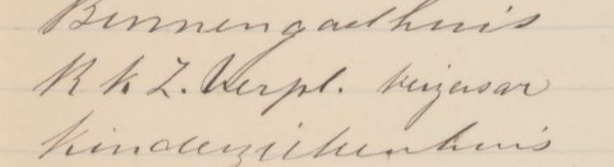 Binnengasthuis
R k Z. Verpl.
Kinderziekenhuis